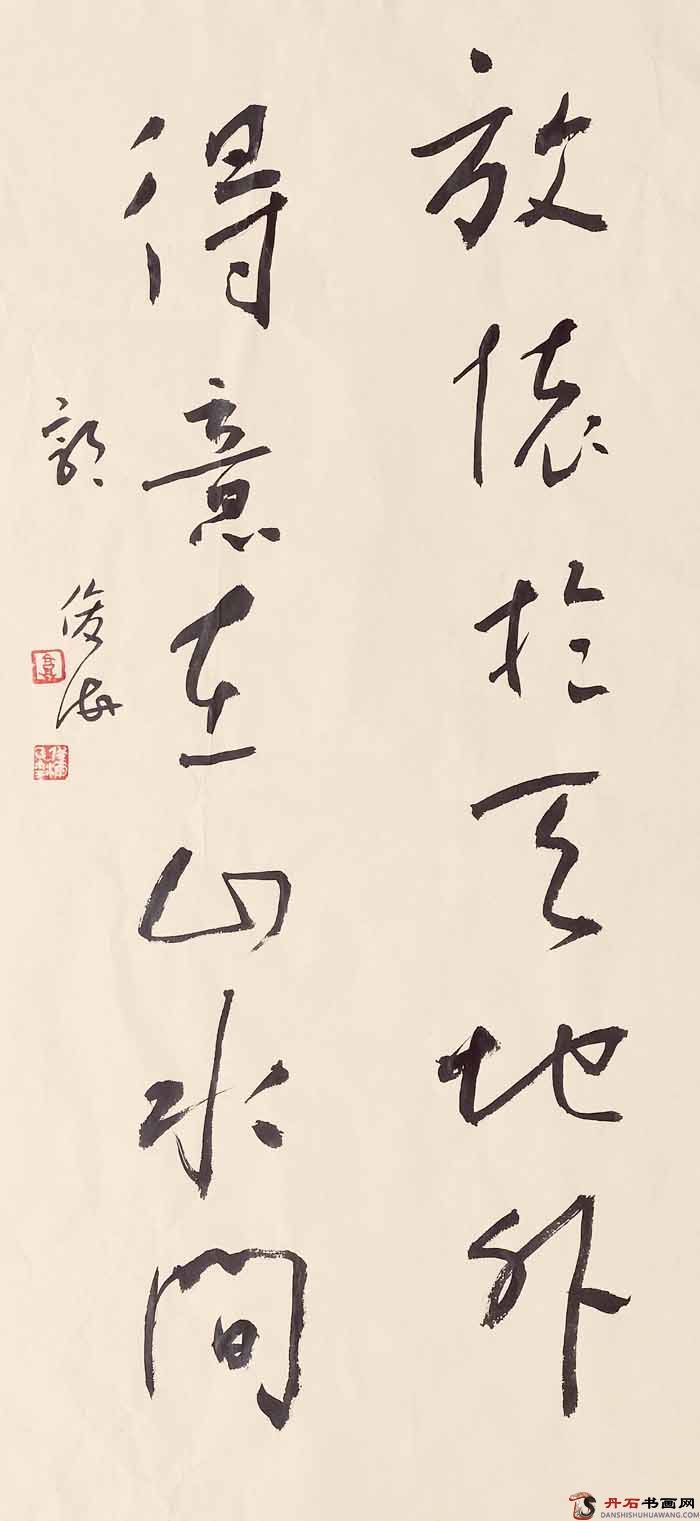 放懷於天地外
得意在山水間
郭俊海
丹石书画网
DANSHISHUHUAWANG.COM